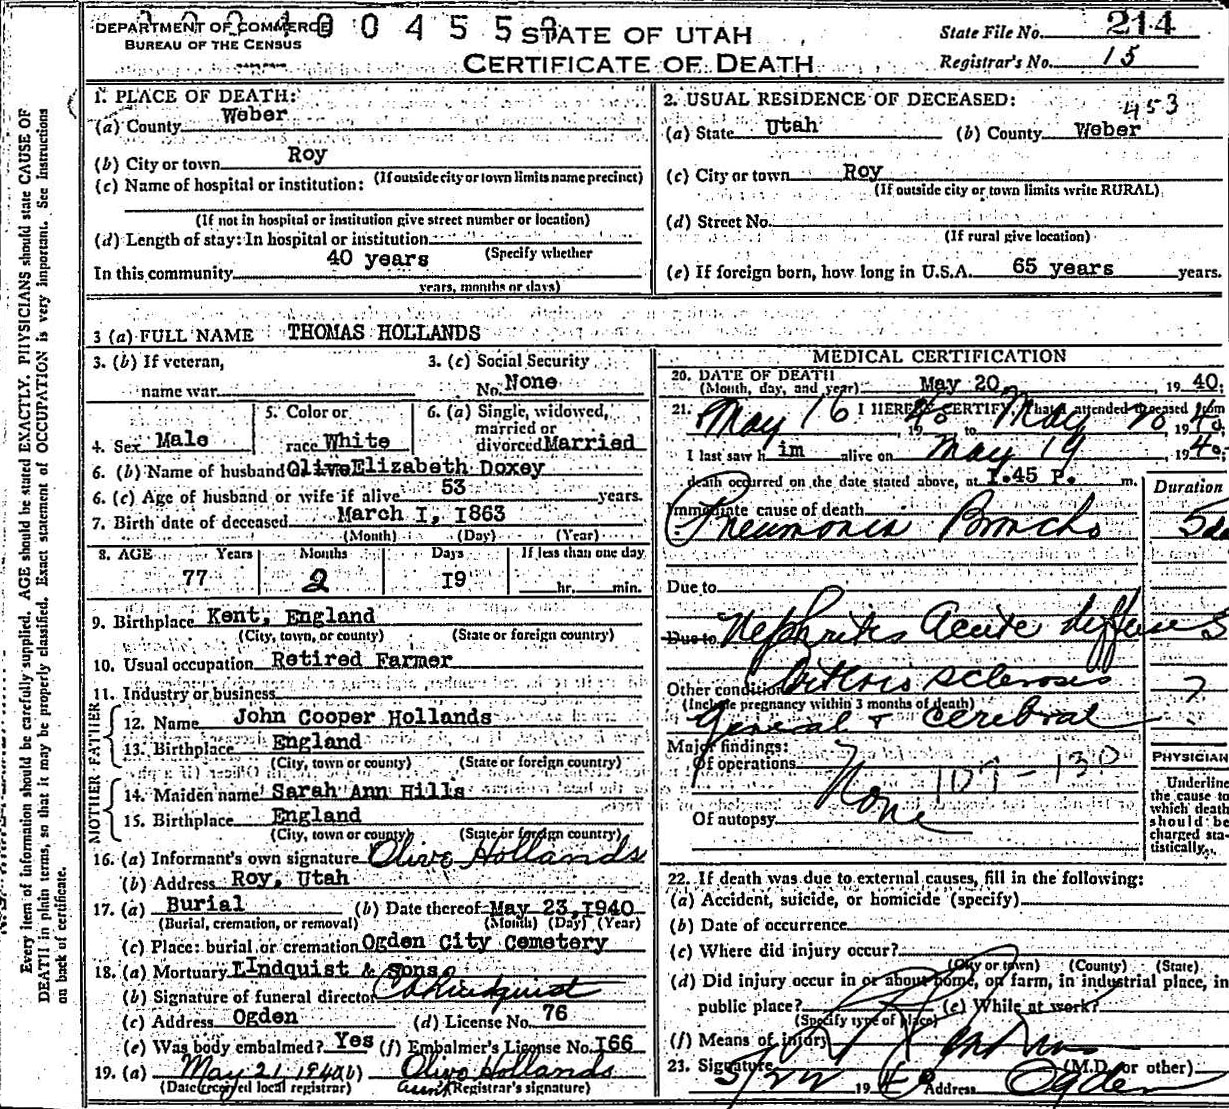 DEPARTMENT OF COMMERCE
BUREAU OF THE CENSUS
0 0 4 5 5
STATE OF UTAH
CERTIFICATE OF DEATH
State File No. 214
Registrar's No. 15
Every item of information should be carefully supplied. AGE should be stated EXACTLY. PHYSICIANS should state CAUSE OF
DEATH in plain terms, so that it may be properly classified. Exact statement of OCCUPATION is very important. See Instructions
on back of certificate.
1. PLACE OF DEATH:
(a) County Weber
(b) City or town Roy
(If outside city or town limits name precinct)
(c) Name of hospital or institution:
(If not in hospital or institution give street number or location)
(d) Length of stay: In hospital or institution
(Specify whether
In this community 40 years
years, months or days)
2. USUAL RESIDENCE OF DECEASED:
453
(a) State Utah (b) County Weber
(c) City or town Roy
(If outside city or town limits write RURAL)
(d) Street No.
(If rural give location)
(e) If foreign born, how long in U.S.A. 65 years years.
3 (a) FULL NAME THOMAS HOLLANDS
3. (b) If veteran,
name war
3. (c) Social Security
No. None
4. Sex Male
5. Color or
race White
6. (a) Single, widowed,
married or
divorced Married
6. (b) Name of husband Olive Elizabeth Doxey
6. (c) Age of husband or wife if alive 53 years.
7. Birth date of deceased March I, I863
(Month) (Day) (Year)
8. AGE Years Months Days If less than one day
77 2 I9 hr. min.
9. Birthplace Kent, England
(City, town, or county) (State or foreign country)
10. Usual occupation Retired Farmer
11. Industry or business
FATHER
12. Name John Cooper Hollands
13. Birthplace England
(City, town or county) (State or foreign country)
MOTHER
14. Maiden name Sarah Ann Hills
15. Birthplace England
(City, town or county) (State or foreign country)
16. (a) Informant's own signature Olive Hollands
(b) Address Roy, Utah
17. (a) Burial (b) Date thereof May 23, I940
(Burial, cremation, or removal) (Month) (Day) (Year)
(c) Place: burial or cremation Ogden City Cemetery
18. (a) Mortuary LIndquist & Sons
(b) Signature of funeral director Lindquist
(c) Address Ogden (d) License No. 76
(e) Was body embalmed? Yes (f) Embalmer's License No. I66
19. (a) May 21, 1940 (b) Olive Hollands
(Date received local registrar) Registrar's signature)
MEDICAL CERTIFICATION
20. DATE OF DEATH
(Month, day, and year) May 20, 1940;
21. I HEREBY CERTIFY, That I attended deceased from
May 16, 1940 to May 20, 1940;
I last saw him alive on May 19, 1940;
death occurred on the date stated above, at I.45 P. m.
Duration
Immediate cause of death
Pneumonia Broncho 5 da
Due to
Due to Nephritis Acute diffuse 5
Other conditions sclerosis ?
(Include pregnancy within 3 months of death)
General & Cerebral
Major findings:
Of operations
107-130
None
Of autopsy
PHYSICIAN
Underline
the cause to
which death
should be
charged sta-
tistically.
22. If death was due to external causes, fill in the following:
(a) Accident, suicide, or homicide (specify)
(b) Date of occurrence
(c) Where did injury occur?
(City or town) (County) (State)
(d) Did injury occur in or about home, on farm, in industrial place, in
public place? (e) While at work?
(Specify type of place)
(f) Means of injury
23. Signature (M.D. or other)
5/22 1940 Address Ogden